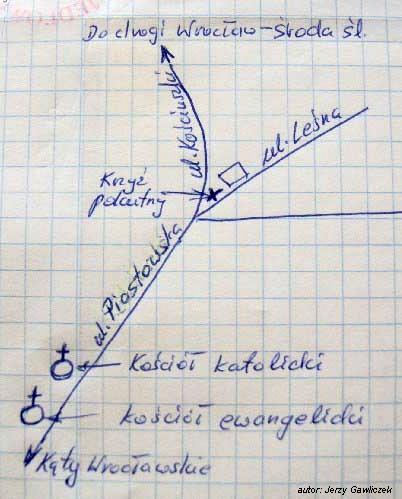 Do drogi Wrocław-Środa Śl.
ul. Kościuszki
ul. Leśna
Krzyż
pokutny
ul. Piastowska
Kościół katolicki
kościół ewangelicki
Kąty Wrocławskie
autor: Jerzy Gawliczek